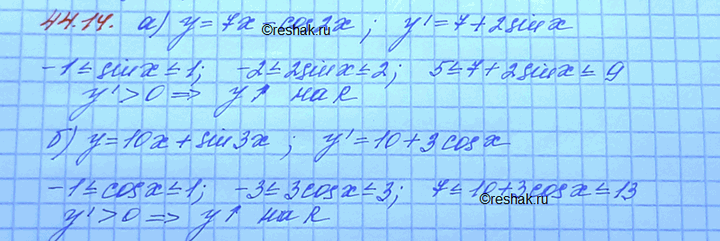 44.14. а) y = 7x - cos2x ; y' = 7 + 2sinx
©reshak.ru
-1 ≤ sinx ≤ 1; -2 ≤ 2sinx ≤ 2; 5 ≤ 7 + 2sinx ≤ 9
y' > 0 => y↑ на R
б) y = 10x + sin3x ; y' = 10 + 3cosx
-1 ≤ cosx ≤ 1; -3 ≤ 3cosx ≤ 3; 7 ≤ 10 + 3cosx ≤ 13
©reshak.ru
y' > 0 => y↑ на R